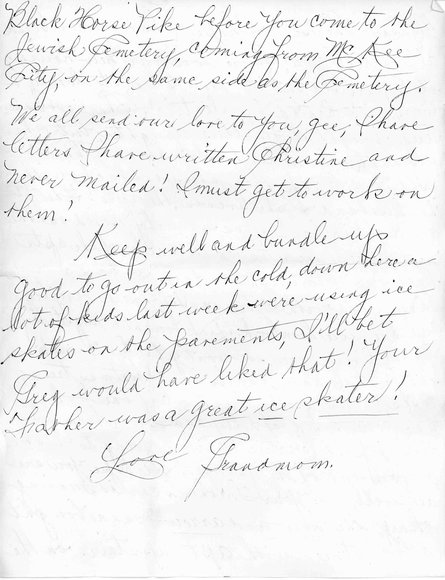 Black Horse Pike before you come to the
Jewish Cemetery, coming from Mc Kee
City, on the same side as the Cemetery.
We all send our love to you, gee, I have
letters I have written Christine and
never mailed! I must get to work on
them!
Keep well and bundle up
good to go out in the cold, down here a
lot of kids last week were using ice
skates on the pavements, I'll bet
Greg would have liked that! Your
Father was a great ice skater!
Love Grandmom.